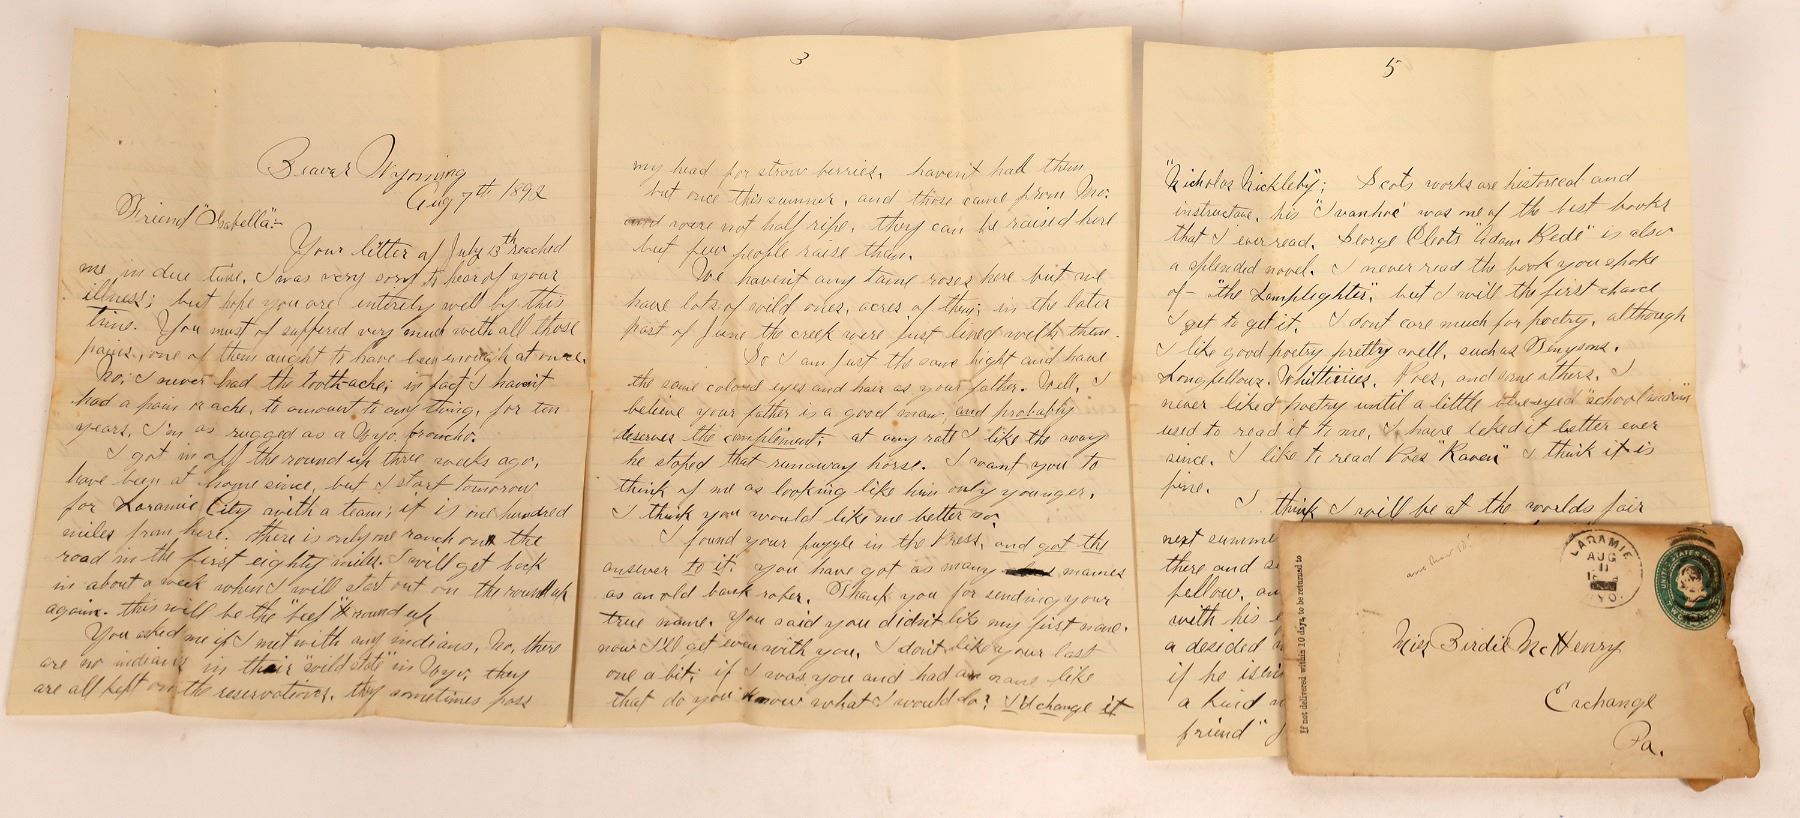 Beaver Wyoming
Aug 7th 1892
Friend "Isabella":-
Your letter of July 13th reached
me, in due time. I was very sorry to hear of your
illness; but hope you are entirely well by this
time. You must of suffered very much with all those
pains, one of them aught to have been enough at once.
No; I never had the tooth-ache; in fact I havent
had a pain or ache, to amount to any thing, for ten
years, I'm as rugged as a Wyo, broncho.
I got in off the round up three weeks ago,
have been at home since, but I start tomorrow
for Laramie City with a team; it is one hundred
miles from here. there is only one ranch on the
road in the first eighty miles. I will get back
in about a week when I will start out on the round up
again. this will be the "beef" round up
You asked me if I met with any indians, No, there
are no indians in their "wild state" in Wyo; they
are all kept on the reservations, they sometimes pass
3
my head for straw berries. havent had them
but once this summer, and those came from Mo.
and were not half ripe, they can be raised here
but few people raise them.
We havent any tame roses here but we
have lots of wild ones, acres of them; in the later
part of June the creek were just lined with them.
So I am just the same hight and have
the same colored eyes and hair as your father. Well, I
believe your father is a good man and probably
deserves the complement; at any rate I like the way
he stoped that runaway horse. I want you to
think of me as looking like him only younger,
I think you would like me better so.
I found your puzzle in the Press, and got the
answer to it. you have got as many names
as an old bank rober. Thank you for sending your
true name. You said you didnt like my first name.
now I'll get even with you, I dont like your last
one a bit; if I was you and had a name like
that do you know what I would do? I'd change it
5
"Nicholas Nickleby"; Scots works are historical and
instructive, his "Ivanhoe" was one of the best books
that I ever read. George Eliots "Adam Bede" is also
a splended novel. I never read the book you spoke
of - "the Lamplighter", but I will the first chance
I get to get it. I dont care much for poetry, although
I like good poetry pretty well, such as Tenysons.
Longfellows. Whittiers. Poes, and some others. I
never liked poetry until a little blue-eyed "school marm"
used to read it to me, I have liked it better ever
since. I like to read Poes "Raven" I think it is
fine.
I think I will be at the worlds fair
next summe
there and s
fellow, an
with his
a decided
if he isent
a kind
friend"
If not delivered within 10 days, to be returned to
LARAMIE
AUG
11
WYO.
UNITED STATES
Miss Birdie McHenry
Exchange
Pa.